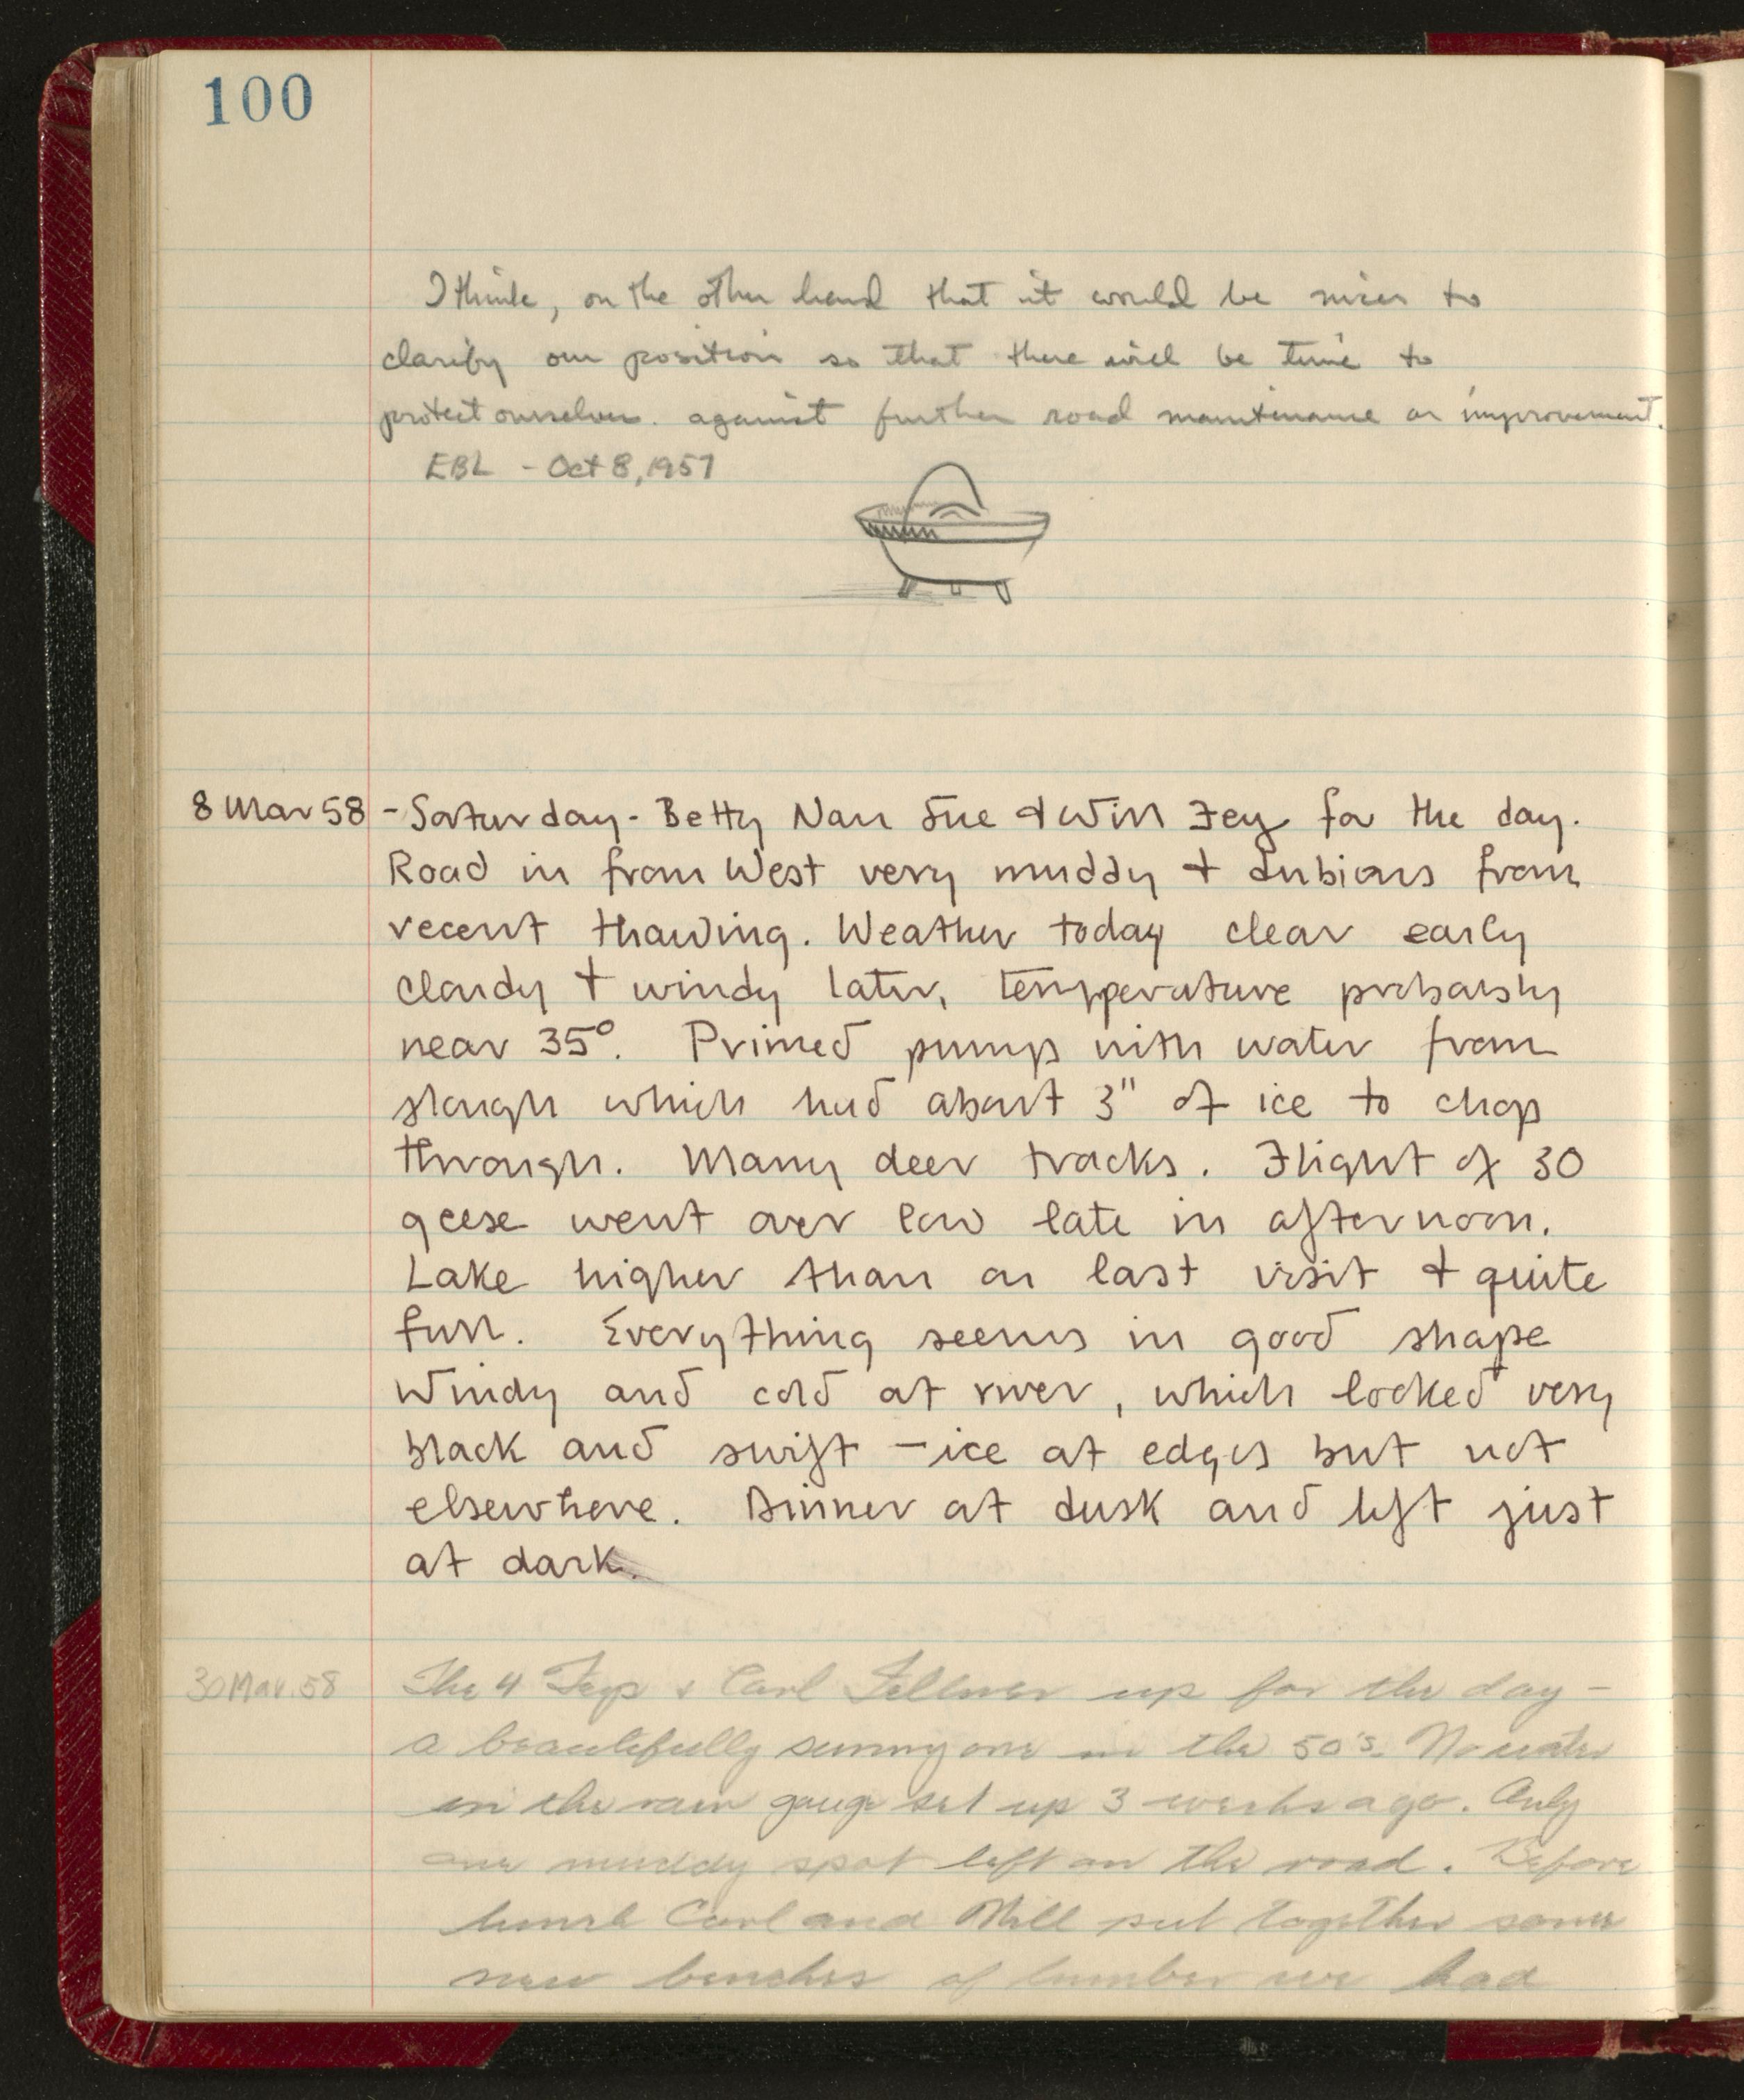 100
I think, on the other hand that it would be nicer to
clarify our position so that there will be time to
protect ourselves. against further road maintenance or improvement.
EBL - Oct 8, 1957
8 Mar 58 - Saturday - Betty Nan Sue & Will Fey for the day.
Road in from West very muddy + dubious from
recent thawing. Weather today clear early
cloudy + windy later, temperature probably
near 35°. Primed pump with water from
slough which had about 3" of ice to chop
through. Many deer tracks. Flight of 30
geese went over low late in afternoon.
Lake higher than on last visit & quite
full. Everything seems in good shape
Windy and cold at river, which looked very
black and swift - ice at edges but not
elsewhere. Dinner at dusk and left just
at dark.
30 Mar. 58 The 4 Feys & Carl up for the day -
a beautifully sunny one in the 50's. No water
in the rain gauge set up 3 weeks ago. Only
one muddy spot left on the road. Before
lunch Carl and Will put together some
new benches of lumber we had